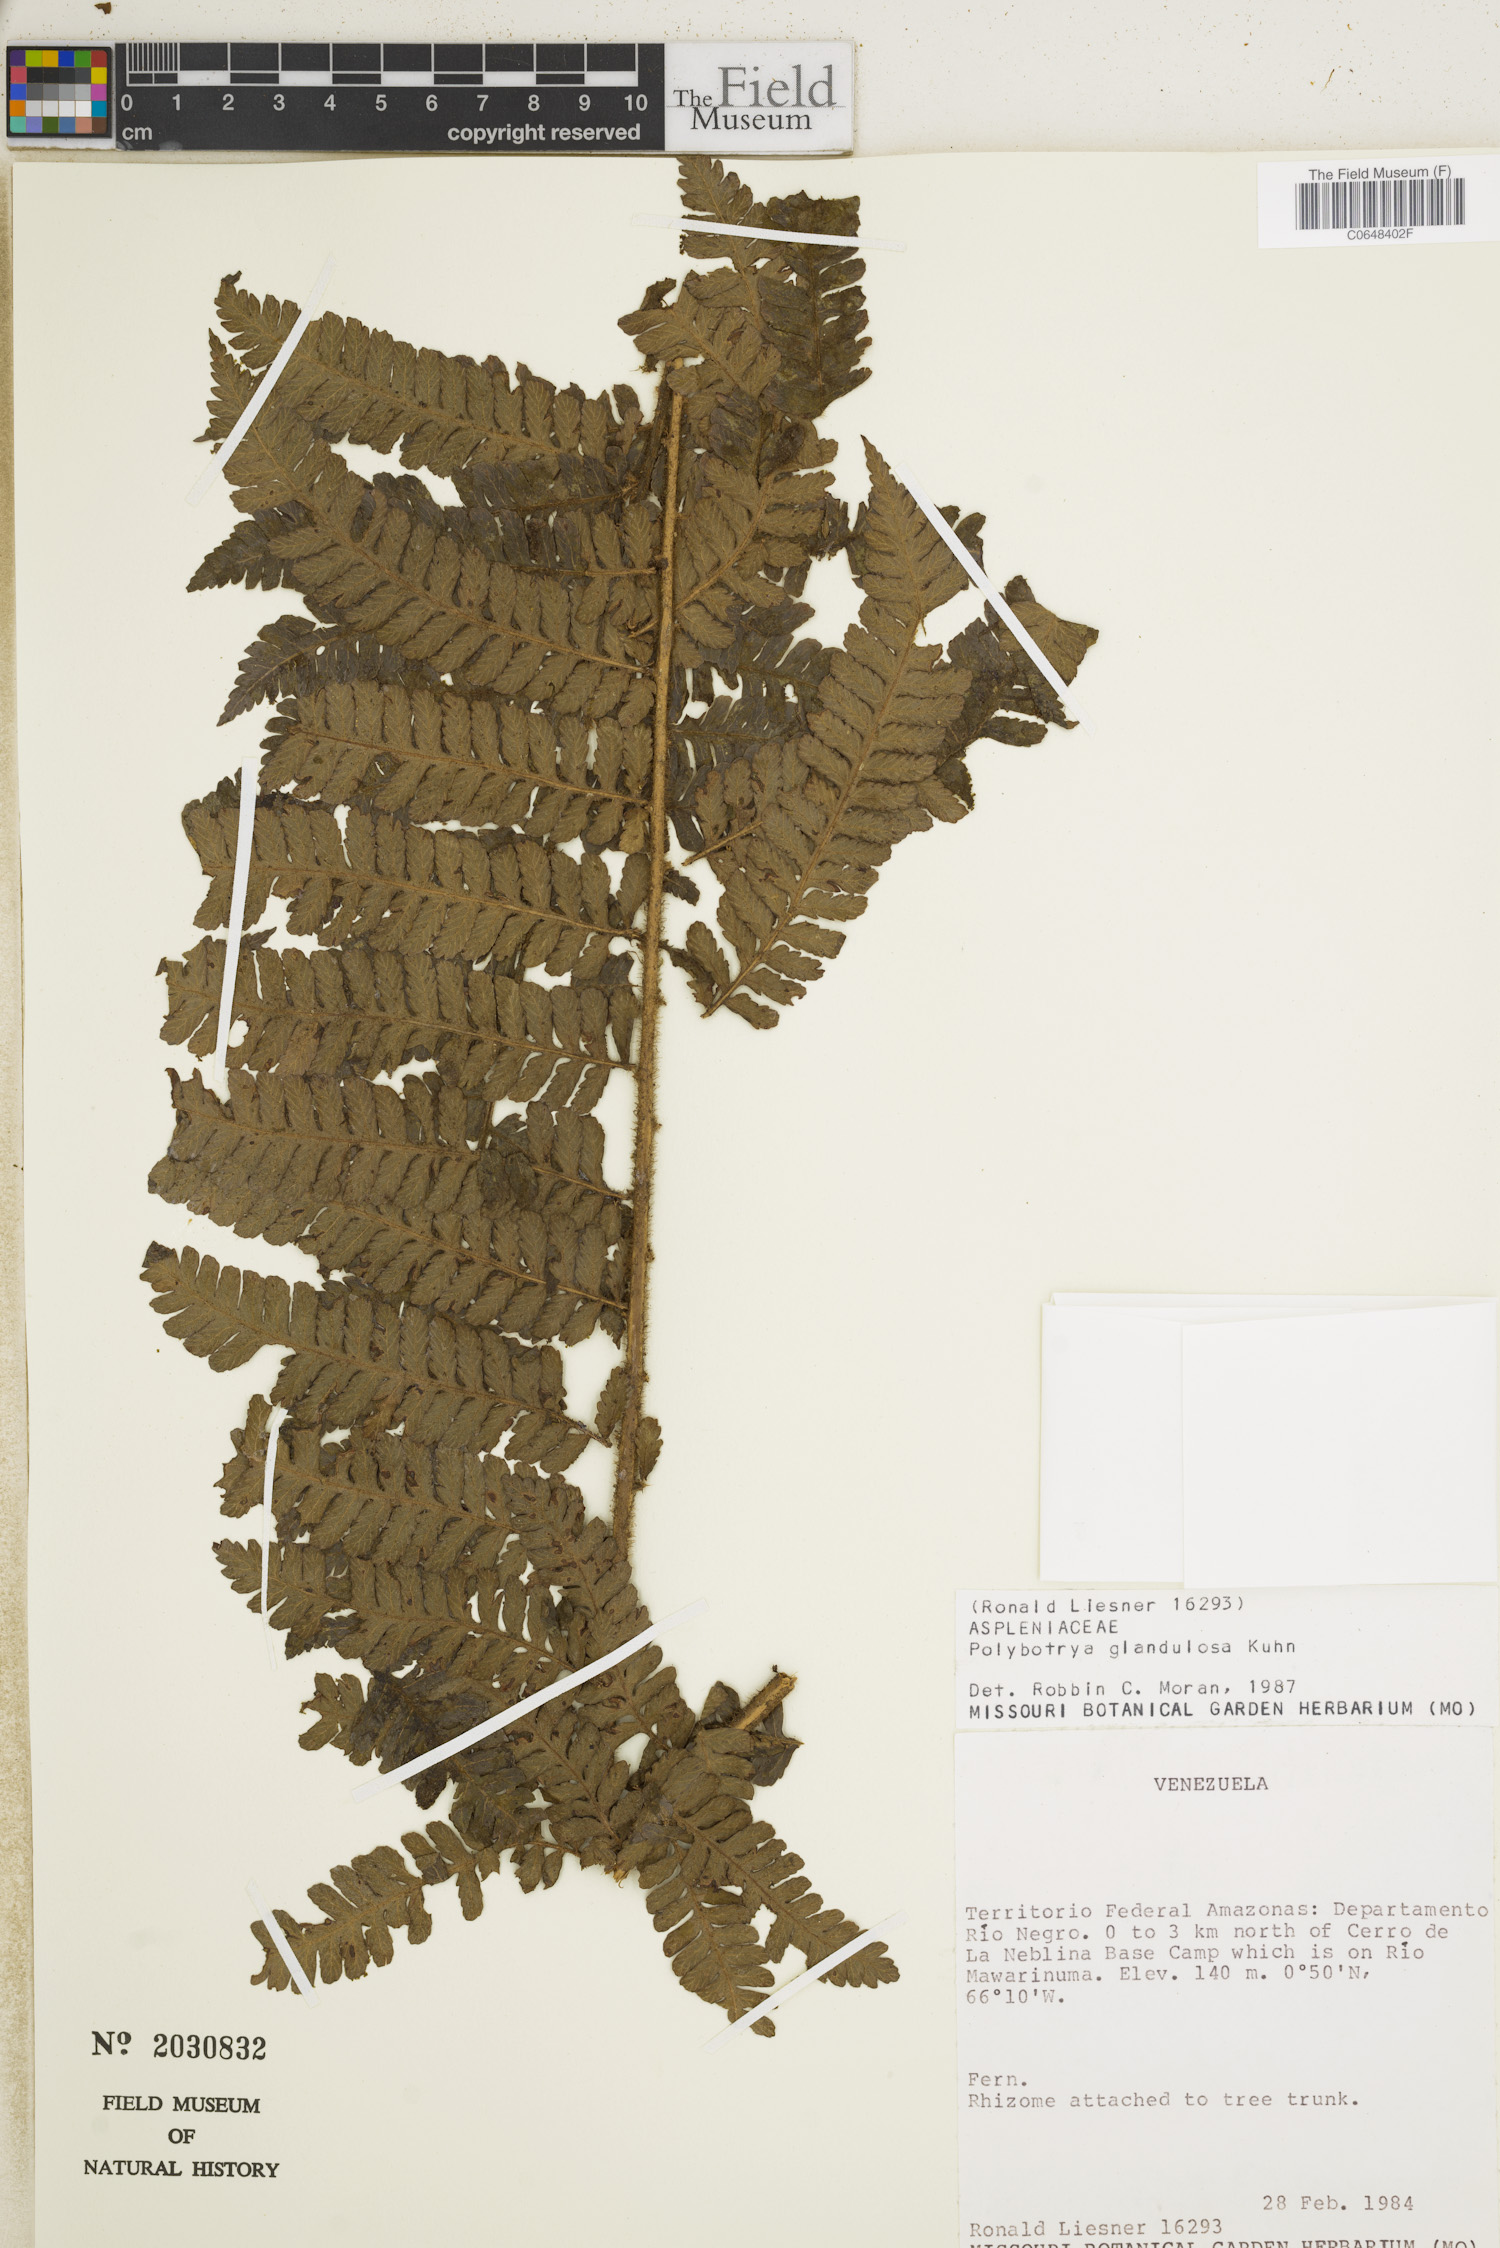 0 1 2 3 4 5 6 7 8 9 10
cm copyright reserved
The Field
Museum
The Field Museum (F)
C0648402F
(Ronald Liesner 16293)
ASPLENIACEAE
Polybotrya glandulosa Kuhn
Det. Robbin C. Moran, 1987
MISSOURI BOTANICAL GARDEN HERBARIUM (MO)
VENEZUELA
Territorio Federal Amazonas: Departamento
Río Negro. 0 to 3 km north of Cerro de
La Neblina Base Camp which is on Río
Mawarinuma. Elev. 140 m. 0°50'N,
66°10'W.
Fern.
Rhizome attached to tree trunk.
28 Feb. 1984
Ronald Liesner 16293
MISSOURI BOTANICAL GARDEN HERBARIUM (MO)
Nº 2030832
FIELD MUSEUM
OF
NATURAL HISTORY